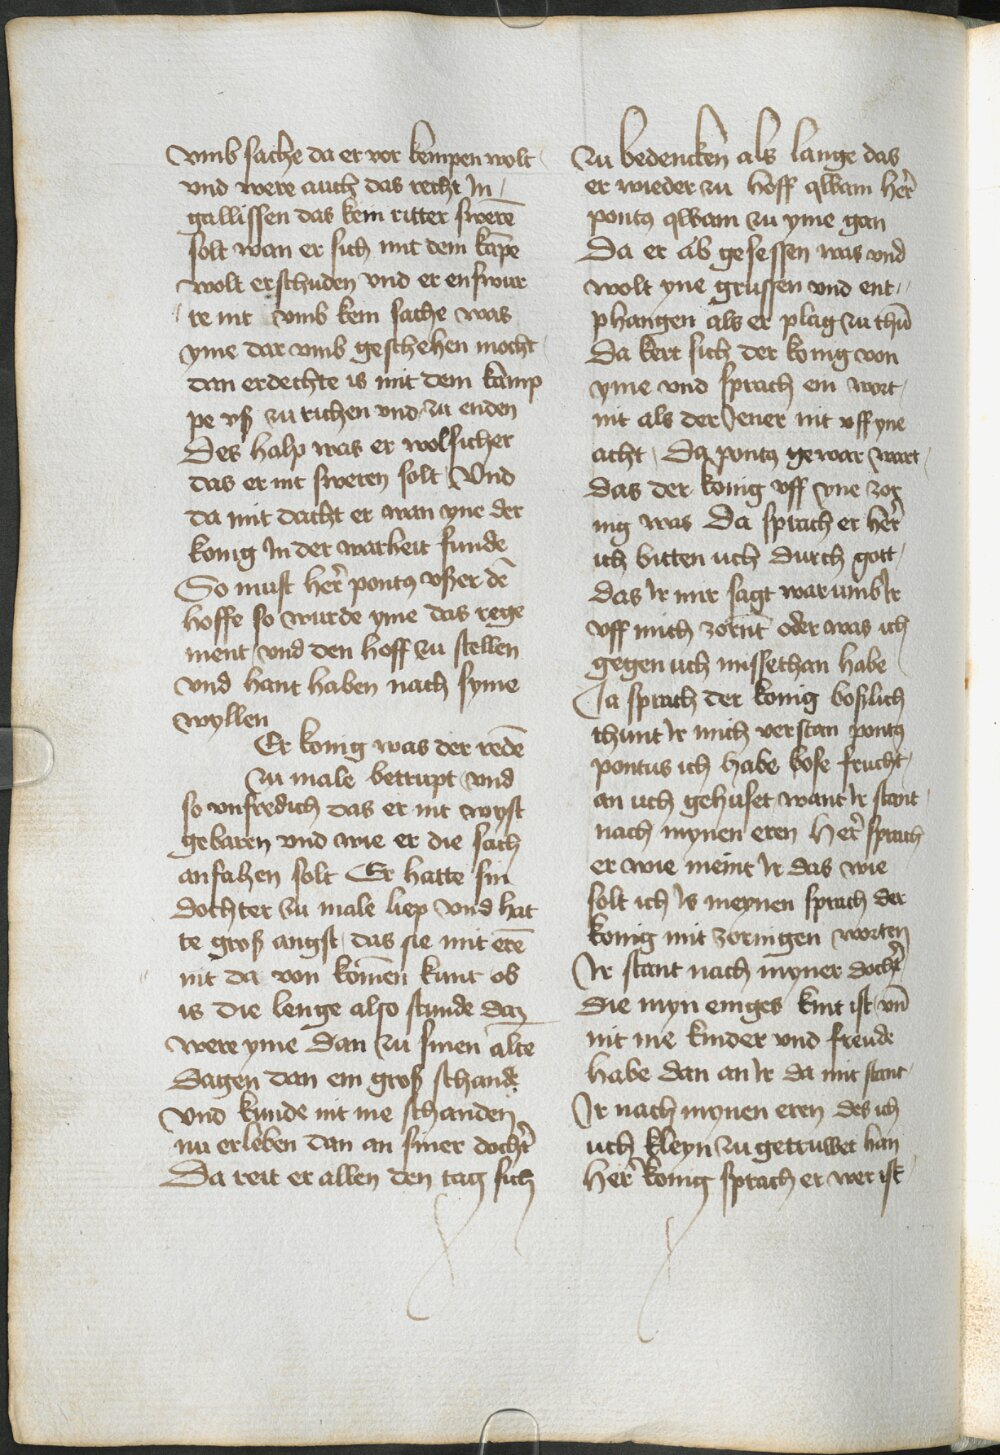 vmb sache da er vor kempen wolt
vnd were auch das recht In
gallissen das kein ritter swerē
solt wan er sich mit dem kāpe
wolt erschuden vnd er enswur
re nit vmb kein sache was
yme dar vmb geschehen mocht
dan er dechte is mit dem kamp
pe vß zu richen vnd zu enden
Des halp was er wol sicher
das er nit sweren solt Vnd
da mit dacht er wan yne der
konig In der warheit funde
So must her̄ pontꝰ vßer dē
hoffe so wurde yme das rege
ment vnd den hoff zu stellen
vnd hant haben nach syme
wyllen
Er konig was der redē
zu male betrupt vnd
so vnfredich das er nit wyst
gebaren vnd wie er die sach
anfahen solt Er hatte sin
dochter zu male liep vnd hat
te groß angst das sie mit erē
nit da von kōmen kunt ob
is die lenge also stunde daz
were yme dan zu sinen alte
dagen dan ein groß schande
vnd kunde nit me schanden
nu erleben dan an siner docht̄
Da reit er allen den tag sich
zu bedencken als lange das
er wieder zu hoff qwam her̄
pontꝰ qwam zu yme gan
Da er ab gesessen was vnd
wolt yne grussen vnd ent
phangen als er plag zu thū
Da kert sich der konig von
yme vnd sprach ein wort
nit als der Jener nit vff yne
acht Da pontꝰ gewar wart
das der konig vff yne zor
nig was Da sprach er her̄
ich bitten uch durch gott
das Ir mir sagt warumb Ir
vff mich zornt oder was ich
gegen uch missethan habe
Ja sprach der konig boßlich
thunt Ir mich verstan pontꝰ
pontus ich habe bose frucht
an uch gehuset want Ir stant
nach mynen eren Her̄ sprach
er wie meint Ir das wie
solt ich Is meynen sprach der
konig mit zornigen worten
Ir stant nach myner docht̄
die myn einges kint ist vn̄
nit me kinder vnd freude
habe dan an Ir da mit stant
Ir nach mynen eren des ich
uch kleyn zu getruwet han
Her̄ konig sprach er wer ist